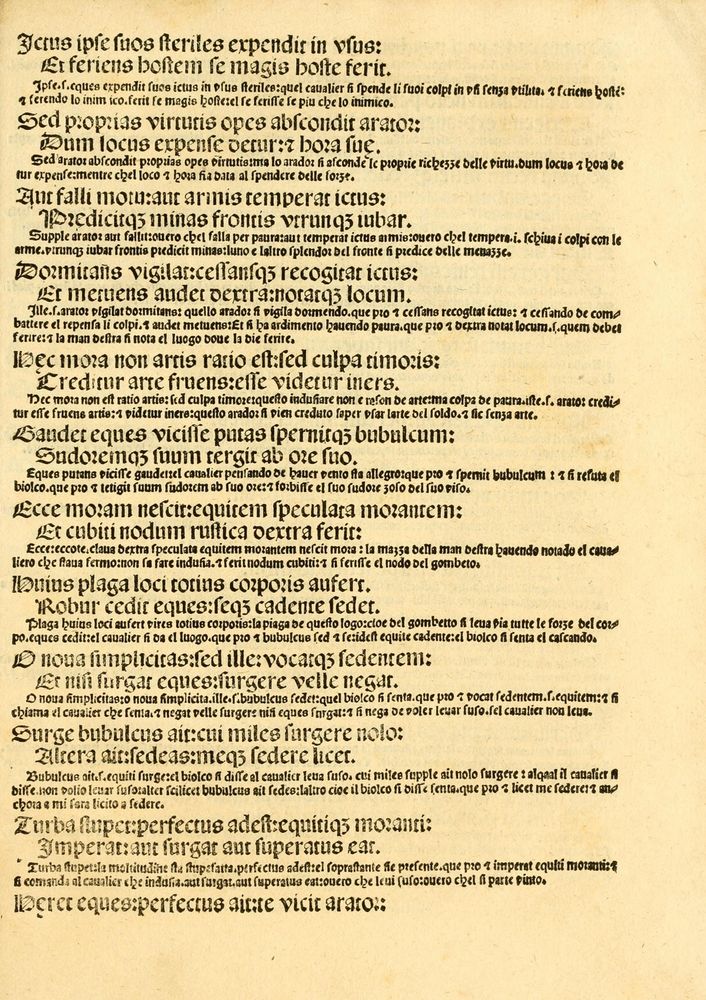 Ictus ipse suos steriles expendit in vsus:
Et feriens hostem se magis hoste ferit.
Ipse.s.eques expendit suos ictus in vsus steriles:quel caualier si spende li suoi colpi in vsi senza vtilita. ⁊ feriens hoste:
⁊ ferendo lo inim ico.ferit se magis hoste:el se ferisse se piu che lo inimico.
Sed proprias virtutis opes abscondit arator:
Dum locus expense detur:⁊ hora sue.
Sed arator abscondit proprias opes virtutis:ma lo arador si asconde le proprie richezze delle virtu.dum locus ⁊ hora de
tur expense:mentre chel loco ⁊ hora sia data al spendere delle forze.
Aut falli motu:aut armis temperat ictus:
Predicitqꝫ minas frontis vtrunqꝫ iubar.
Supple arator aut fallit:ouero chel falla per paura:aut temperat ictus armis:ouero chel tempera.i. schiua i colpi con le
arme.vtrunqꝫ iubar frontis predicit minas:luno e laltro splendor del fronte si predice delle menazze.
Dormitans vigilat:cessansqꝫ recogitat ictus:
Et metuens audet dextra:notatqꝫ locum.
Ille.s.arator vigilat dormitans: quello arador si vigila dormendo.que pro ⁊ cessans recogitat ictus: ⁊ cessando de com⸗
battere el repensa li colpi.⁊ audet metuens:Et si ha ardimento hauendo paura.que pro ⁊ dextra notat locum.s.quem debet
ferire:⁊ la man destra si nota el luogo doue la die ferire.
Nec mora non artis ratio est:sed culpa timoris:
Creditur arte fruens:esse videtur iners.
Nec mora non est ratio artis: sed culpa timore:questo indusiare non e reson de arte:ma colpa de paura.iste.s. arator credi⸗
tur esse fruens artis:⁊ videtur iners:questo arador si vien creduto saper vsar larte del soldo.⁊ sic senza arte.
Gaudet eques vicisse putas spernitqꝫ bubulcum:
Sudoremqꝫ suum tergit ab ore suo.
Eques putans vicisse gaudet:el caualier pensando de hauer vento sta allegro:que pro ⁊ spernit bubulcum : ⁊ si refuta el
biolco.que pro ⁊ tetigit suum sudorem ab suo ore:⁊ forbisse el suo sudore zoso del suo viso.
Ecce moram nescit:equitem speculata morantem:
Et cubiti nodum rustica dextra ferit:
Ecce:eccote.claua dextra speculata equitem morantem nescit mora : la mazza della man destra hauendo notado el caua⸗
liero che staua fermo:non sa fare indusia.⁊ ferit nodum cubiti:⁊ si ferisse el nodo del gombeto.
Huius plaga loci totius corporis aufert.
Robur cedit eques:seqꝫ cadente sedet.
Plaga huius loci aufert vires totius corporis:la piaga de questo logo:cioe del gombetto si leua via tutte le forze del cor⸗
po.eques cedit:el caualier si da el luogo.que pro ⁊ bubulcus sed ⁊ se:idest equite cadente:el biolco si senta el cascando.
O noua simplicitas:sed ille:vocatqꝫ sedentem:
Et nisi surgat eques:surgere velle negat.
O noua simplicitas:o noua simplicita.ille.s.bubulcus sedet:quel biolco si senta.que pro ⁊ vocat sedentem.s.equitem:⁊ si
chiama el caualier che senta.⁊ negat velle surgere nisi eques surgat:⁊ si nega de voler leuar suso.sel caualier non leua.
Surge bubulcus ait:cui miles surgere nolo:
Altera ait:sedeas:meqꝫ sedere licet.
Bubulcus ait.s.equiti surge:el biolco si disse al caualier leua suso. cui miles supple ait nolo surgere : alqual il caualier si
disse.non volio leuar suso:alter scilicet bubulcus ait sedes:laltro cioe il biolco si disse senta.que pro ⁊ licet me sedere:⁊ an⸗
chora a mi sara licito a sedere.
Turba stupet:perfectus adest:equitiqꝫ moranti:
Imperat:aut surgat aut superatus eat.
Turba stupet:la moltitudine sta stupefatta.perfectus adest:el soprastante sie presente.que pro ⁊ imperat equiti moranti:⁊
si comanda al caualier che indusia.aut surgat.aut superatus eat:ouero che leui suso:ouero chel si parte vinto.
Heret eques:perfectus ait:te vicit arator: